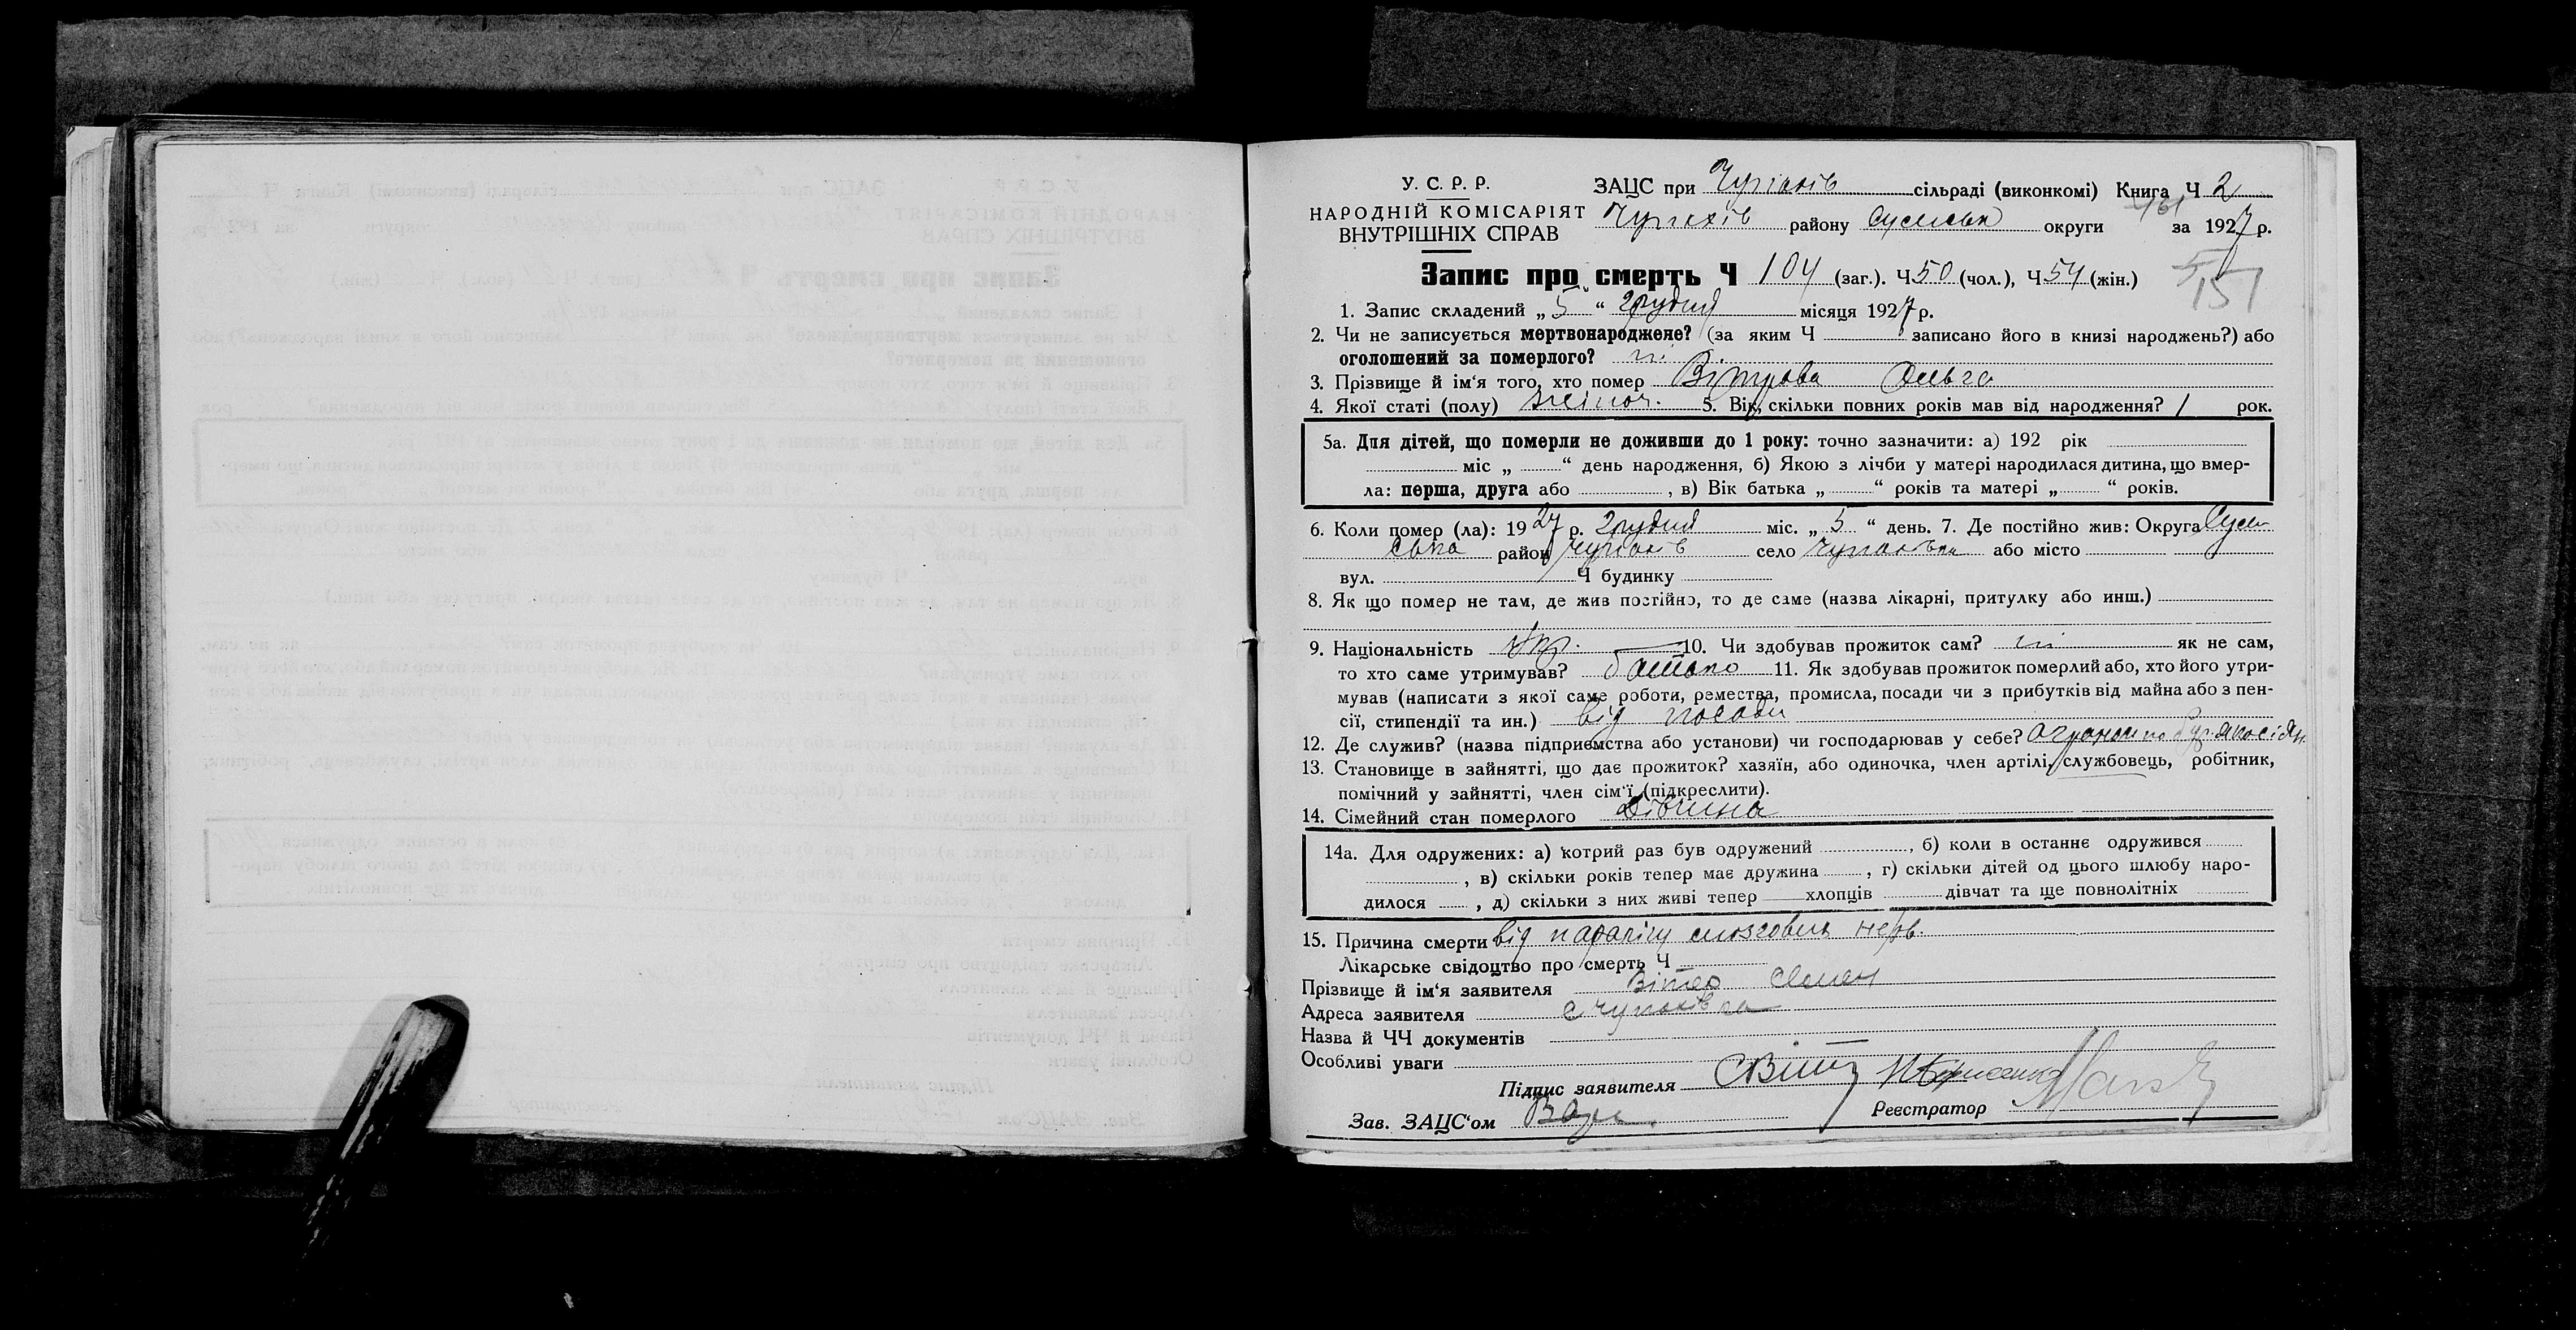 У. С. Р. Р.
НАРОДНІЙ КОМІСАРІЯТ
ВНУТРІШНІХ СПРАВ
ЗАЦС при Чупахів сільраді (виконкомі) Книга Ч 2
Чупахів району Сумська округи 131 за 1927 р.
Запис про смерть Ч 104 (заг.). Ч 50 (чол.), Ч 54 (жін.)
151
1. Запис складений „ 5 “ грудня місяця 1927 р.
2. Чи не записується мертвонароджене? (за яким Ч записано його в книзі народжень?) або
оголошений за померлого? ні
3. Прізвище й ім'я того, хто помер Вітрова Ольга
4. Якої статі (полу) жіноч. 5. Вік, скільки повних років мав від народження? 1 рок.
5а. Для дітей, що померли не доживши до 1 року: точно зазначити: а) 192 рік
міс „ “ день народження, б) Якою з лічби у матері народилася дитина, що вмер-
ла: перша, друга або , в) Вік батька „ “ років та матері „ “ років.
6. Коли помер (ла): 1927 р. грудня міс. „ 5 “ день. 7. Де постійно жив: Округа Сум
ська район Чупахів село Чупахівка або місто
вул. Ч будинку
8. Як що помер не там, де жив постійно, то де саме (назва лікарні, притулку або инш.)
9. Національність Укр. 10. Чи здобував прожиток сам? ні як не сам,
то хто саме утримував? батько 11. Як здобував прожиток померлий або, хто його утри-
мував (написати з якої саме роботи, ремества, промисла, посади чи з прибутків від майна або з пен-
сії, стипендії та ин.) від посади
12. Де служив? (назва підприємства або установи) чи господарював у себе? Агроном по
13. Становище в зайнятті, що дає прожиток? хазяїн, або одиночка, член артілі, службовець, робітник,
помічний у зайнятті, член сім'ї (підкреслити).
14. Сімейний стан померлого Дівчина
14а. Для одружених: а) котрий раз був одружений , б) коли в останнє одружився
, в) скільки років тепер має дружина , г) скільки дітей од цього шлюбу наро-
дилося , д) скільки з них живі тепер хлопців дівчат та ще повнолітніх
15. Причина смерти від паралічу мозгових нерв.
Лікарське свідоцтво про смерть Ч
Прізвище й ім'я заявителя Вітер Семен
Адреса заявителя с Чупахівка
Назва й ЧЧ документів
Особливі уваги
Підпис заявителя СВітер
Зав. ЗАЦС'ом Реєстратор